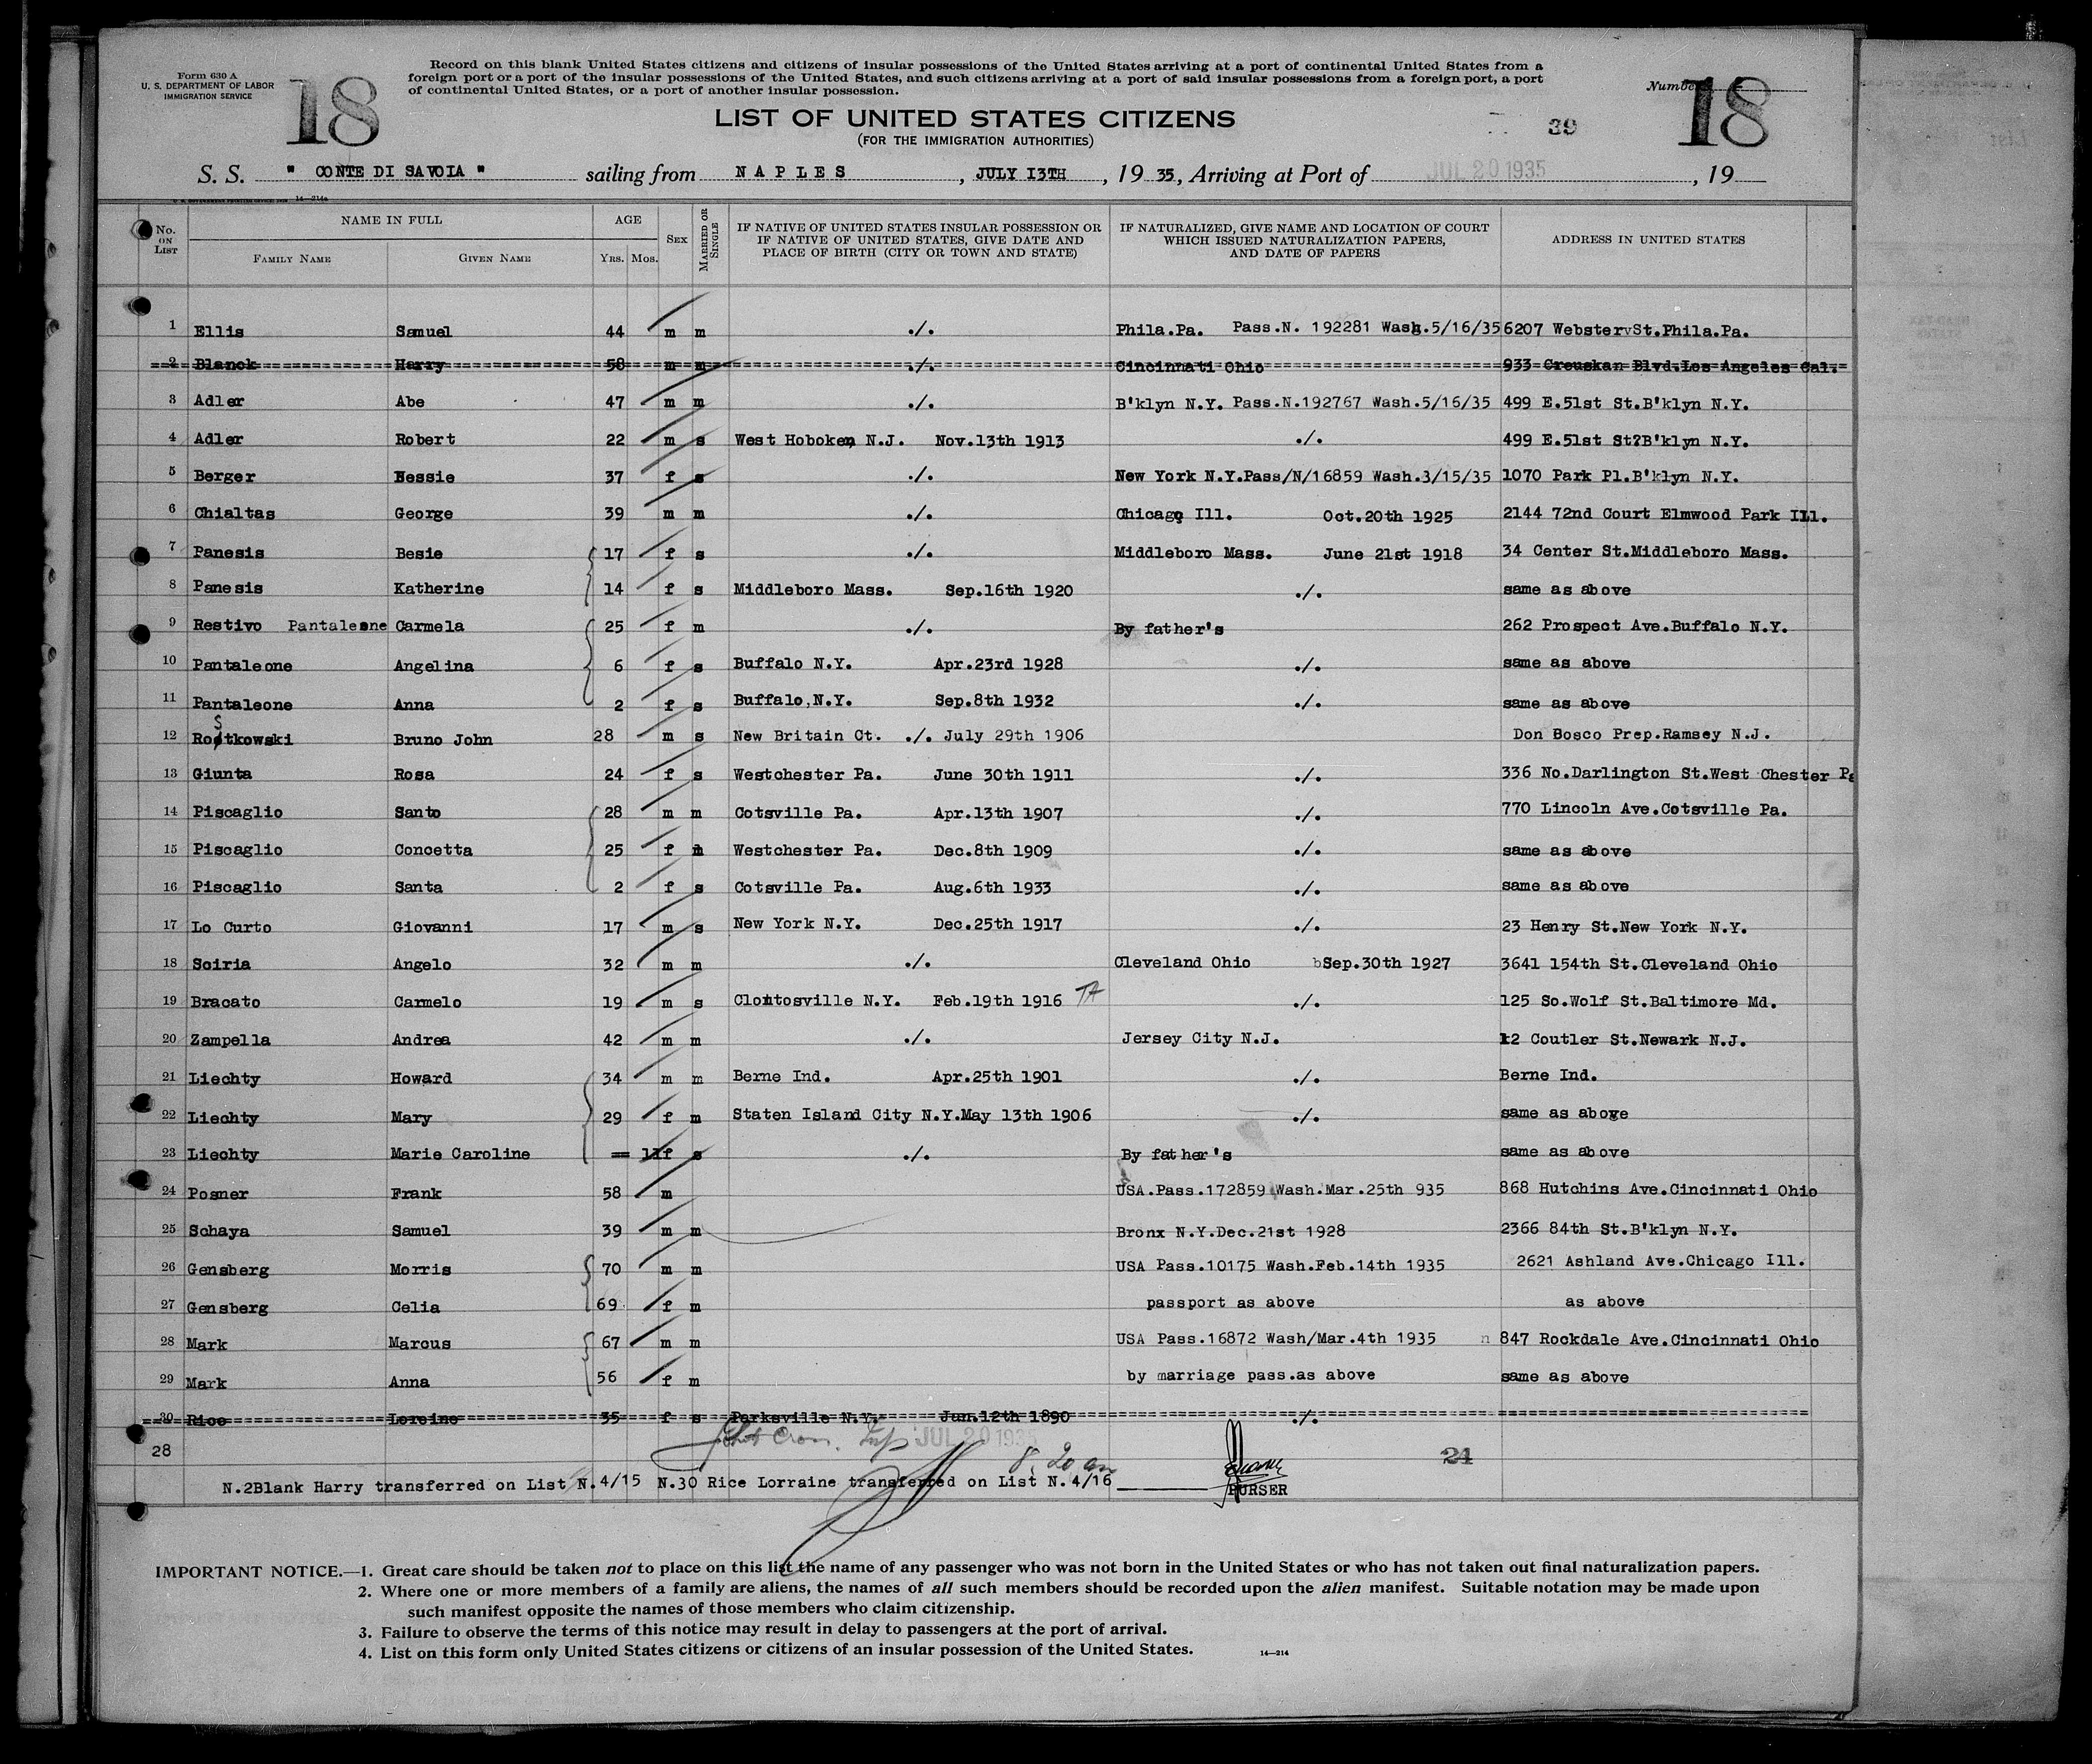 Form 630 A
U. S. DEPARTMENT OF LABOR
IMMIGRATION SERVICE
18
Record on this blank United States citizens and citizens of insular possessions of the United States arriving at a port of continental United States from a
foreign port or a port of the insular possessions of the United States, and such citizens arriving at a port of said insular possessions from a foreign port, a port
of continental United States, or a port of another insular possession.
Number 18
LIST OF UNITED STATES CITIZENS
(FOR THE IMMIGRATION AUTHORITIES)
39
S. S. " CONTE DI SAVOIA " sailing from NAPLES, JULY I3TH, 19 35, Arriving at Port of JUL 20 1935, 19
14—214a
No. ON LIST NAME IN FULL AGE SEX MARRIED OR SINGLE IF NATIVE OF UNITED STATES INSULAR POSSESSION OR IF NATIVE OF UNITED STATES, GIVE DATE AND PLACE OF BIRTH (CITY OR TOWN AND STATE) IF NATURALIZED, GIVE NAME AND LOCATION OF COURT WHICH ISSUED NATURALIZATION PAPERS, AND DATE OF PAPERS ADDRESS IN UNITED STATES
FAMILY NAME GIVEN NAME YRS. MOS.
1 Ellis Samuel 44 m m ./. Phila.Pa. Pass.N. 192281 Wash.5/16/35 6207 Webster St.Phila.Pa.
2 Blanck Harry 58 m m ./. Cincinnati Ohio 933 Creuskan Blvd.Los Angeles Cal.
3 Adler Abe 47 m m ./. B'klyn N.Y. Pass.N.192767 Wash.5/16/35 499 E.51st St.B'klyn N.Y.
4 Adler Robert 22 m s West Hoboken N.J. Nov.13th 1913 ./. 499 E.51st St?B'klyn N.Y.
5 Berger Nessie 37 f s ./. New York N.Y.Pass/N/16859 Wash.3/15/35 1070 Park Pl.B'klyn N.Y.
6 Chialtas George 39 m m ./. Chicago Ill. Oct.20th 1925 2144 72nd Court Elmwood Park Ill.
7 Panesis Besie 17 f s ./. Middleboro Mass. June 21st 1918 34 Center St.Middleboro Mass.
8 Panesis Katherine 14 f s Middleboro Mass. Sep.16th 1920 ./. same as above
9 Restivo Pantaleone Carmela 25 f m ./. By father's 262 Prospect Ave.Buffalo N.Y.
10 Pantaleone Angelina 6 f s Buffalo N.Y. Apr.23rd 1928 ./. same as above
11 Pantaleone Anna 2 f s Buffalo,N.Y. Sep.8th 1932 ./. same as above
12 Rostkowski Bruno John 28 m s New Britain Ct. ./. July 29th 1906 Don Bosco Prep.Ramsey N.J.
13 Giunta Rosa 24 f s Westchester Pa. June 30th 1911 ./. 336 No.Darlington St.West Chester Pa
14 Piscaglio Santo 28 m m Cotsville Pa. Apr.13th 1907 ./. 770 Lincoln Ave.Cotsville Pa.
15 Piscaglio Concetta 25 f m Westchester Pa. Dec.8th 1909 ./. same as above
16 Piscaglio Santa 2 f s Cotsville Pa. Aug.6th 1933 ./. same as above
17 Lo Curto Giovanni 17 m s New York N.Y. Dec.25th 1917 ./. 23 Henry St.New York N.Y.
18 Sciria Angelo 32 m m ./. Cleveland Ohio Sep.30th 1927 3641 154th St.Cleveland Ohio
19 Bracato Carmelo 19 m s Clontosville N.Y. Feb.19th 1916 ./. 125 So.Wolf St.Baltimore Md.
20 Zampella Andrea 42 m m ./. Jersey City N.J. 12 Coutler St.Newark N.J.
21 Liechty Howard 34 m m Berne Ind. Apr.25th 1901 ./. Berne Ind.
22 Liechty Mary 29 f m Staten Island City N.Y.May 13th 1906 ./. same as above
23 Liechty Marie Caroline == 11 f s ./. By father's same as above
24 Posner Frank 58 m USA.Pass.172859 Wash.Mar.25th 935 868 Hutchins Ave.Cincinnati Ohio
25 Schaya Samuel 39 m m Bronx N.Y.Dec.21st 1928 2366 84th St.B'klyn N.Y.
26 Gensberg Morris 70 m m USA Pass.10175 Wash.Feb.14th 1935 2621 Ashland Ave.Chicago Ill.
27 Gensberg Celia 69 f m passport as above as above
28 Mark Marcus 67 m m USA Pass.16872 Wash/Mar.4th 1935 847 Rockdale Ave.Cincinnati Ohio
29 Mark Anna 56 f m by marriage pass.as above same as above
30 Rice Loreine 35 f s Parksville N.Y. Jan.12th 1890 ./.
JUL 20 1935
28 8.20 am 24
N.2Blank Harry transferred on List N.4/15 N.30 Rice Lorraine transferred on List N.4/16
PURSER
IMPORTANT NOTICE.—1. Great care should be taken not to place on this list the name of any passenger who was not born in the United States or who has not taken out final naturalization papers.
2. Where one or more members of a family are aliens, the names of all such members should be recorded upon the alien manifest. Suitable notation may be made upon
such manifest opposite the names of those members who claim citizenship.
3. Failure to observe the terms of this notice may result in delay to passengers at the port of arrival.
4. List on this form only United States citizens or citizens of an insular possession of the United States.
14—214